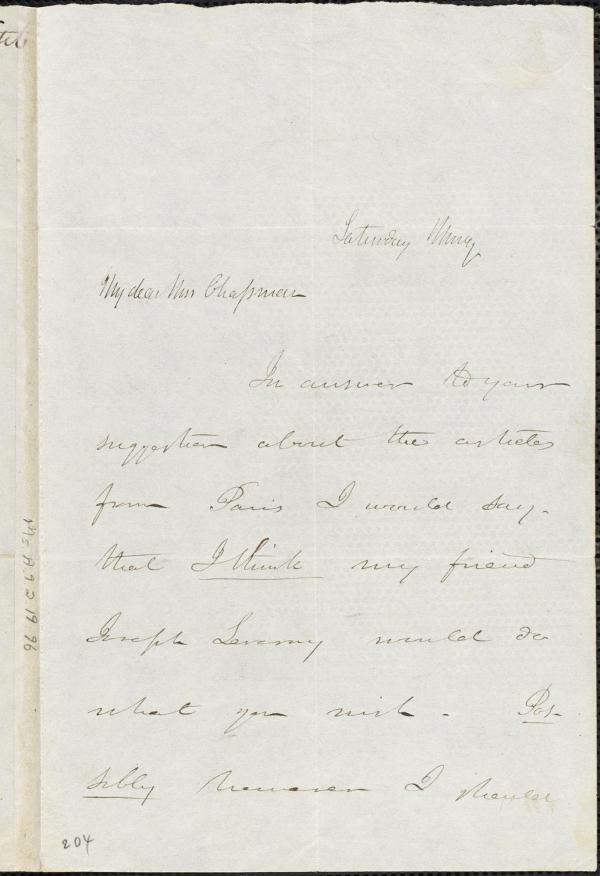 Saturday
My dear Mrs Chapman
In answer to your
suggestion about the articles
from Paris I would say
that I think my friend
Joseph would do
what you wish - Pos-
sibly however I should
204
Ms A 9 2 19 96